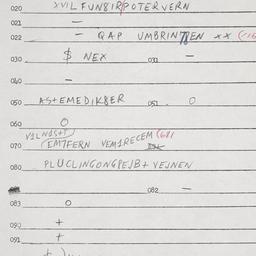 020 XVIL FUN8IR POTERVERN
021 —
022 — QAP UMBRINTBEN XX
030 $ NEX 031 —
040 —
050 AS+EMEDIK8ER 051 O
060 O
V1LN1S+T
070 EM7FERN VEM1RECEM
080 PLUCLINGONGPEJB+ VEJNEN
082 —
083 O
090 +
091 +